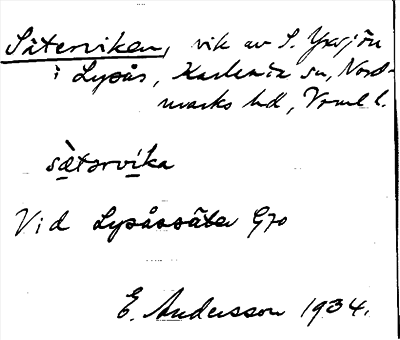 Säterviken, vik av S. Yxsjön
i Lysås, Karlanda sn, Nord-
marks hd, Vrml l.
sàtərvi̱ka
Vid Lysåssäter G70
E. Andersson 1934.